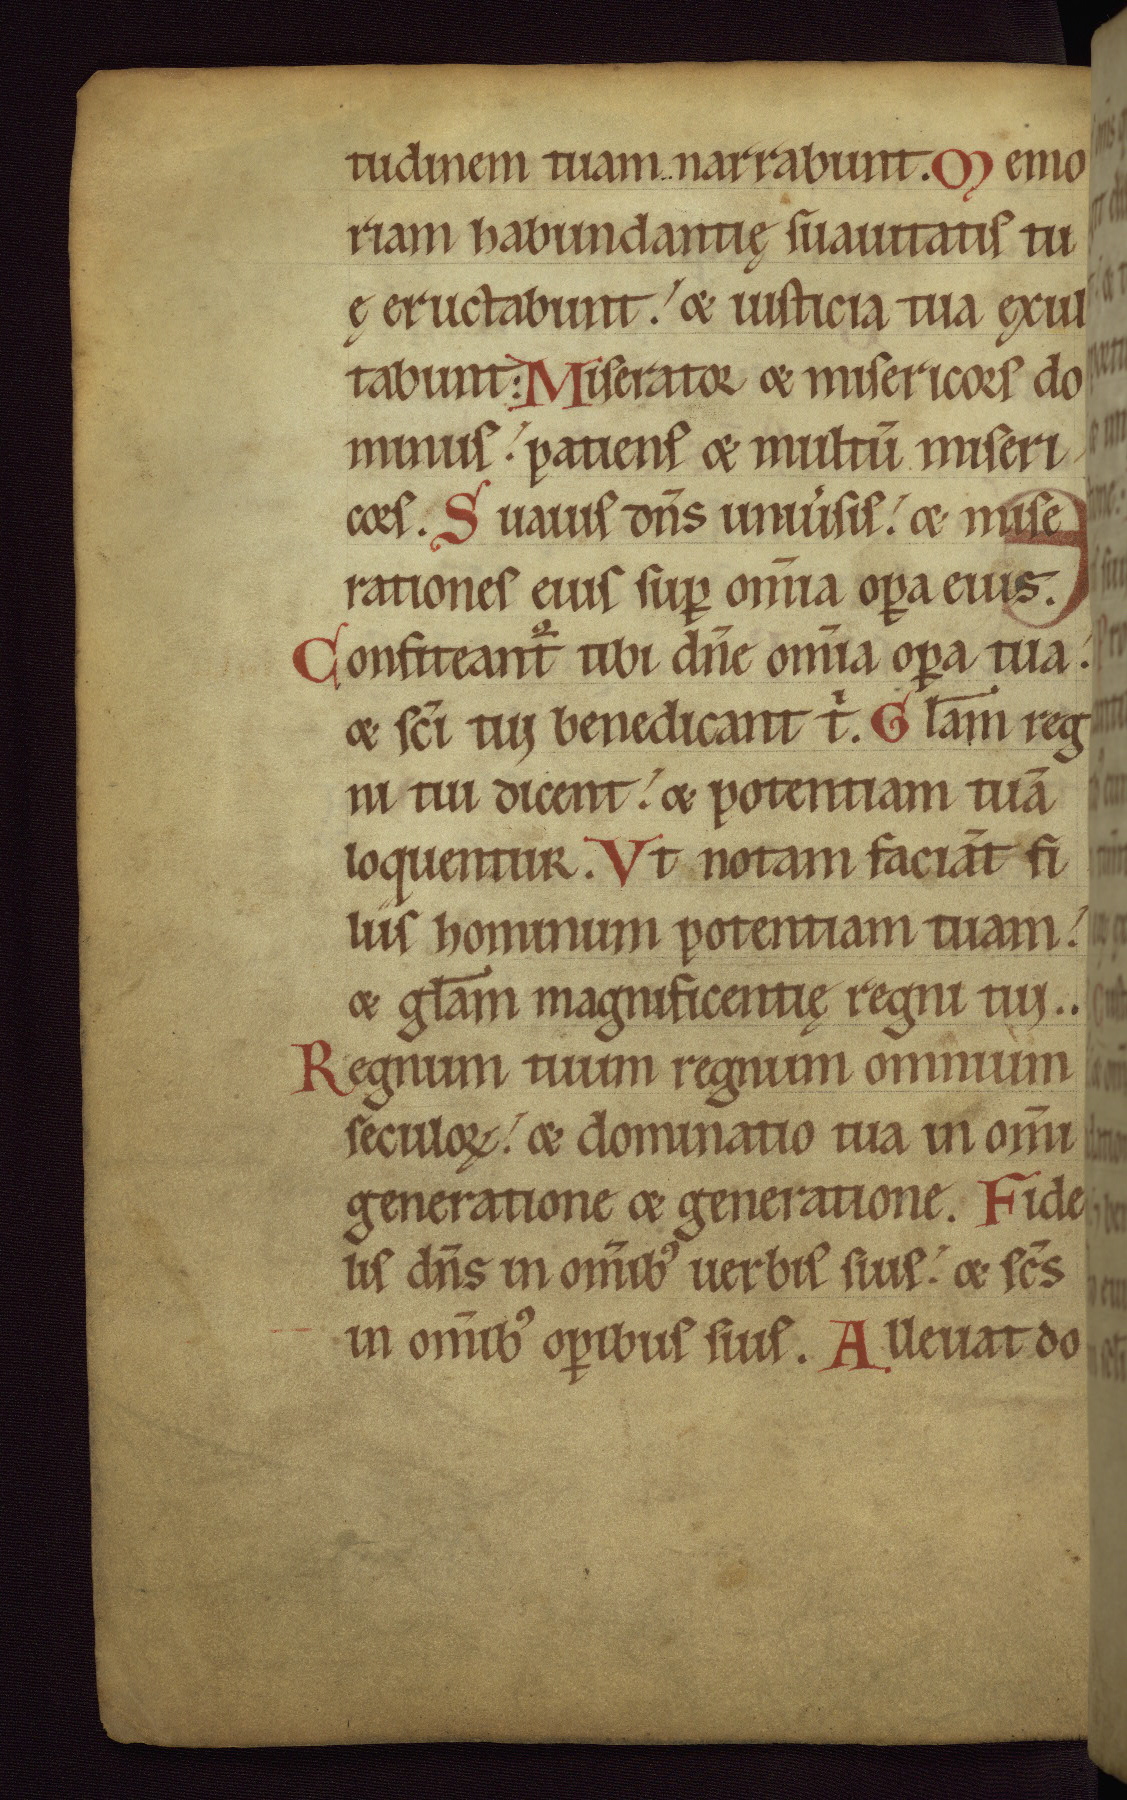 tudinem tuam narrabunt. Memo
riam habundantię suauitatis tu
ę eructabunt: & iusticia tua exul
tabunt: Miserator & misericors do
minus: patiens & multū miseri
cors. Suauis dn̄s uniu̓sis: & mise
rationes eius sup̱ om̄ia op̱a eius.
Confiteant᷑ tibi dn̄e om̄ia op̱a tua:
& sc̄i tui benedicant t̓. Gl̄am reg
ni tui dicent: & potentiam tuā
loquentur. Vt notam faciāt fi
liis hominum potentiam tuam:
& gl̄am magnificentię regni tui..
Regnum tuum regnum omnium
seculoꝝ: & dominatio tua in om̄i
generatione & generatione. Fide
lis dn̄s in om̄ibꝰ uerbis suis: & sc̄s
in om̄ibꝰ op̱ibus suis. Alleuat do